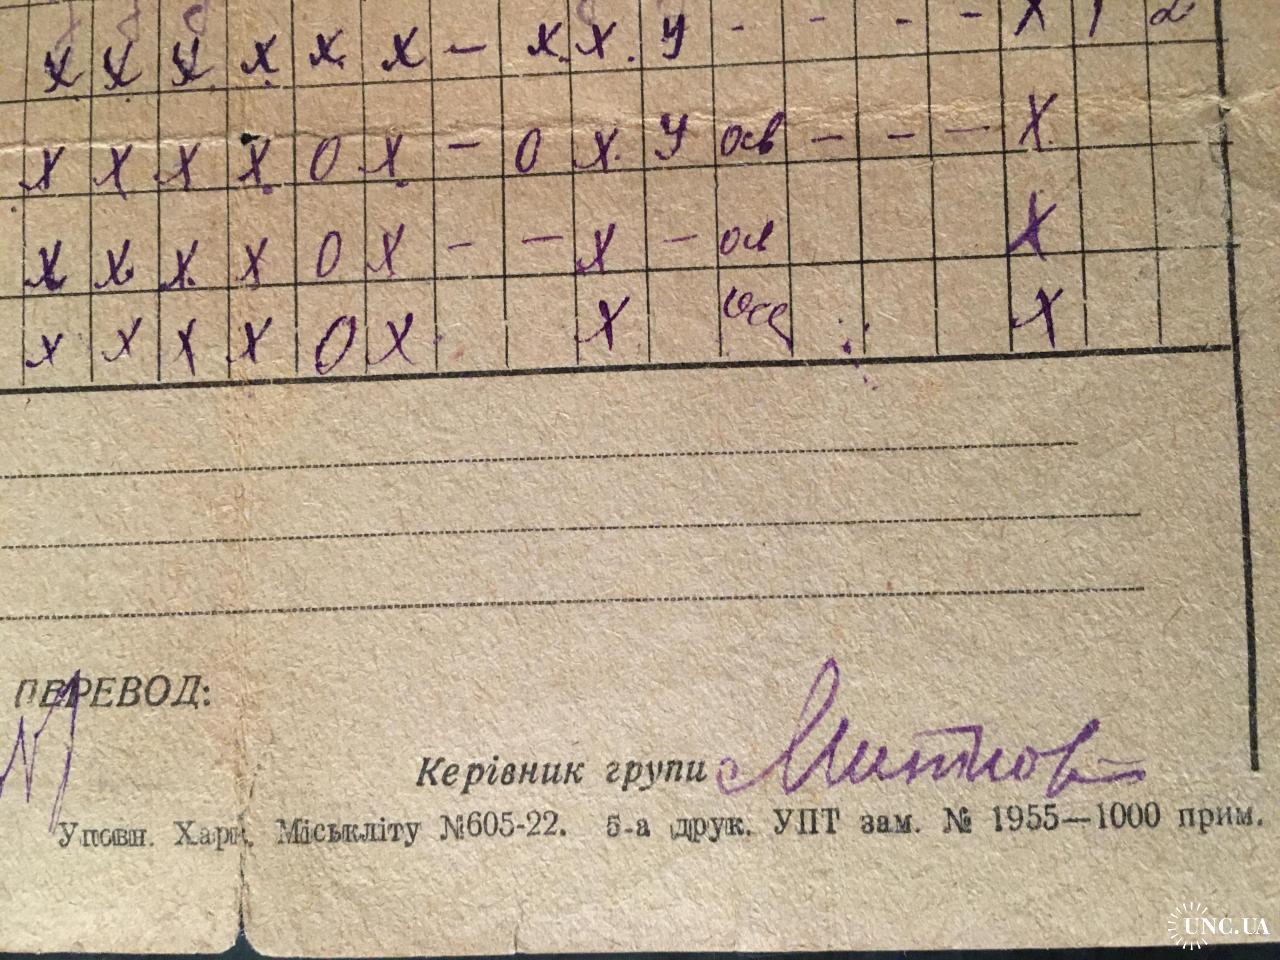 х х х х х х х — х х у - - - - х 1 2
х х х х О х — О х у осв — - — х
х х х х О х - — х — ол х
х х х х О х х х
ПЕРЕВОД:
Керівник групи Митков
Уповн. Харк. Міськліту №605-22. 5-а друк. УПТ зам. № 1955—1000 прим.
UNC.UA